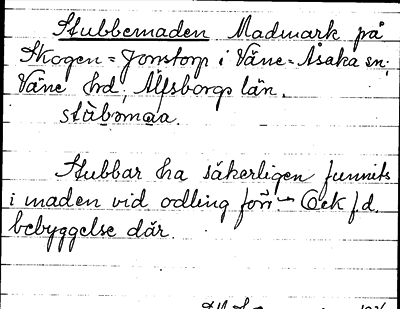 Stubbemaden Madmark på
Skogen = Jonstorp i Väne-Åsaka sn;
Väne hrd, Älfsborgs län.
Stubbar ha säkerligen funnits
i maden vid odling förr och f.d.
bebyggelse där.